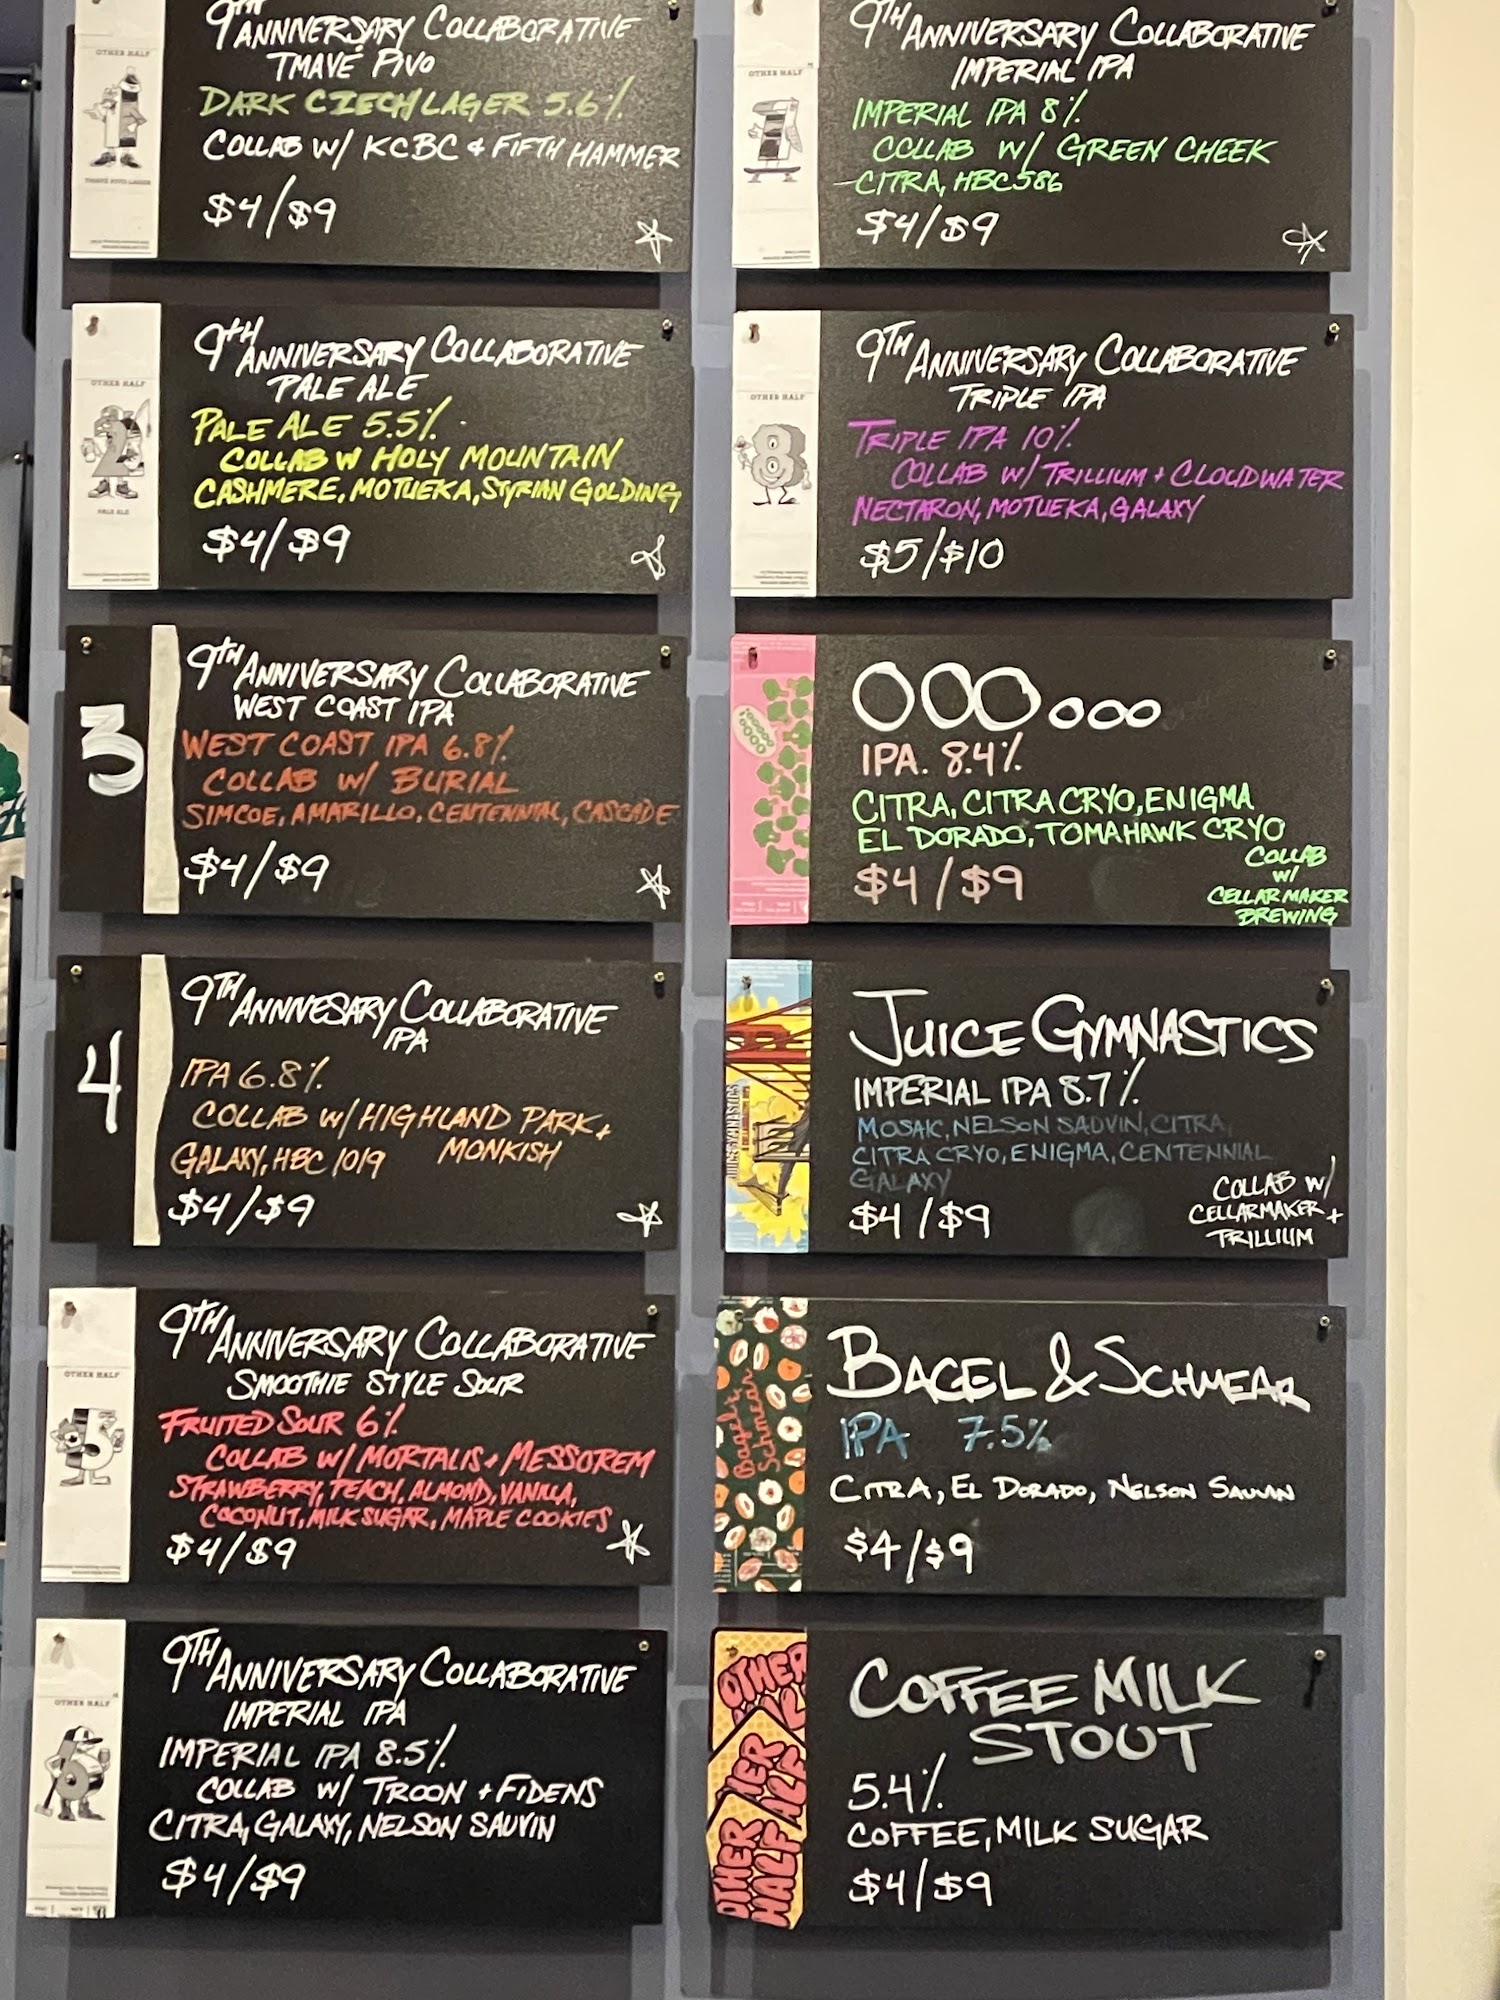 9TH ANNIVERSARY COLLABORATIVE
TMAVÉ PIVO
DARK CZECH LAGER 5.6%
COLLAB W/ KCBC & FIFTH HAMMER
$4/$9
OTHER HALF
9TH ANNIVERSARY COLLABORATIVE
PALE ALE
PALE ALE 5.5%
COLLAB W HOLY MOUNTAIN
CASHMERE, MOTUEKA, STYRIAN GOLDING
$4/$9
OTHER HALF
2
PALE ALE
3
9TH ANNIVERSARY COLLABORATIVE
WEST COAST IPA
WEST COAST IPA 6.8%
COLLAB W/ BURIAL
SIMCOE, AMARILLO, CENTENNIAL, CASCADE
$4/$9
4
9TH ANNIVESARY COLLABORATIVE
IPA
IPA 6.8%
COLLAB W/ HIGHLAND PARK +
MONKISH
GALAXY, HBC 1019
$4/$9
OTHER HALF
5
9TH ANNIVERSARY COLLABORATIVE
SMOOTHIE STYLE SOUR
FRUITED SOUR 6%
COLLAB W/ MORTALIS + MESSOREM
STRAWBERRY, PEACH, ALMOND, VANILLA,
COCONUT, MILK SUGAR, MAPLE COOKIES
$4/$9
OTHER HALF
6
9TH ANNIVERSARY COLLABORATIVE
IMPERIAL IPA
IMPERIAL IPA 8.5%
COLLAB W/ TROON + FIDENS
CITRA, GALAXY, NELSON SAUVIN
$4/$9
OTHER HALF
9TH ANNIVERSARY COLLABORATIVE
IMPERIAL IPA
IMPERIAL IPA 8%
COLLAB W/ GREEN CHEEK
CITRA, HBC 586
$4/$9
OTHER HALF
8
9TH ANNIVERSARY COLLABORATIVE
TRIPLE IPA
TRIPLE IPA 10%
COLLAB W/ TRILLIUM + CLOUDWATER
NECTARON, MOTUEKA, GALAXY
$5/$10
OOOooo
IPA. 8.4%
CITRA, CITRA CRYO, ENIGMA
EL DORADO, TOMAHAWK CRYO
$4/$9
COLLAB
W/
CELLARMAKER
BREWING
JUICE GYMNASTICS
JUICE GYMNASTICS
IMPERIAL IPA 8.7%
MOSAIC, NELSON SAUVIN, CITRA,
CITRA CRYO, ENIGMA, CENTENNIAL
GALAXY
$4/$9
COLLAB W/
CELLARMAKER +
TRILLIUM
Bagels
Schmear
BAGEL & SCHMEAR
IPA 7.5%
CITRA, EL DORADO, NELSON SAUVIN
$4/$9
OTHER HALF
COFFEE MILK
STOUT
5.4%
COFFEE, MILK SUGAR
$4/$9